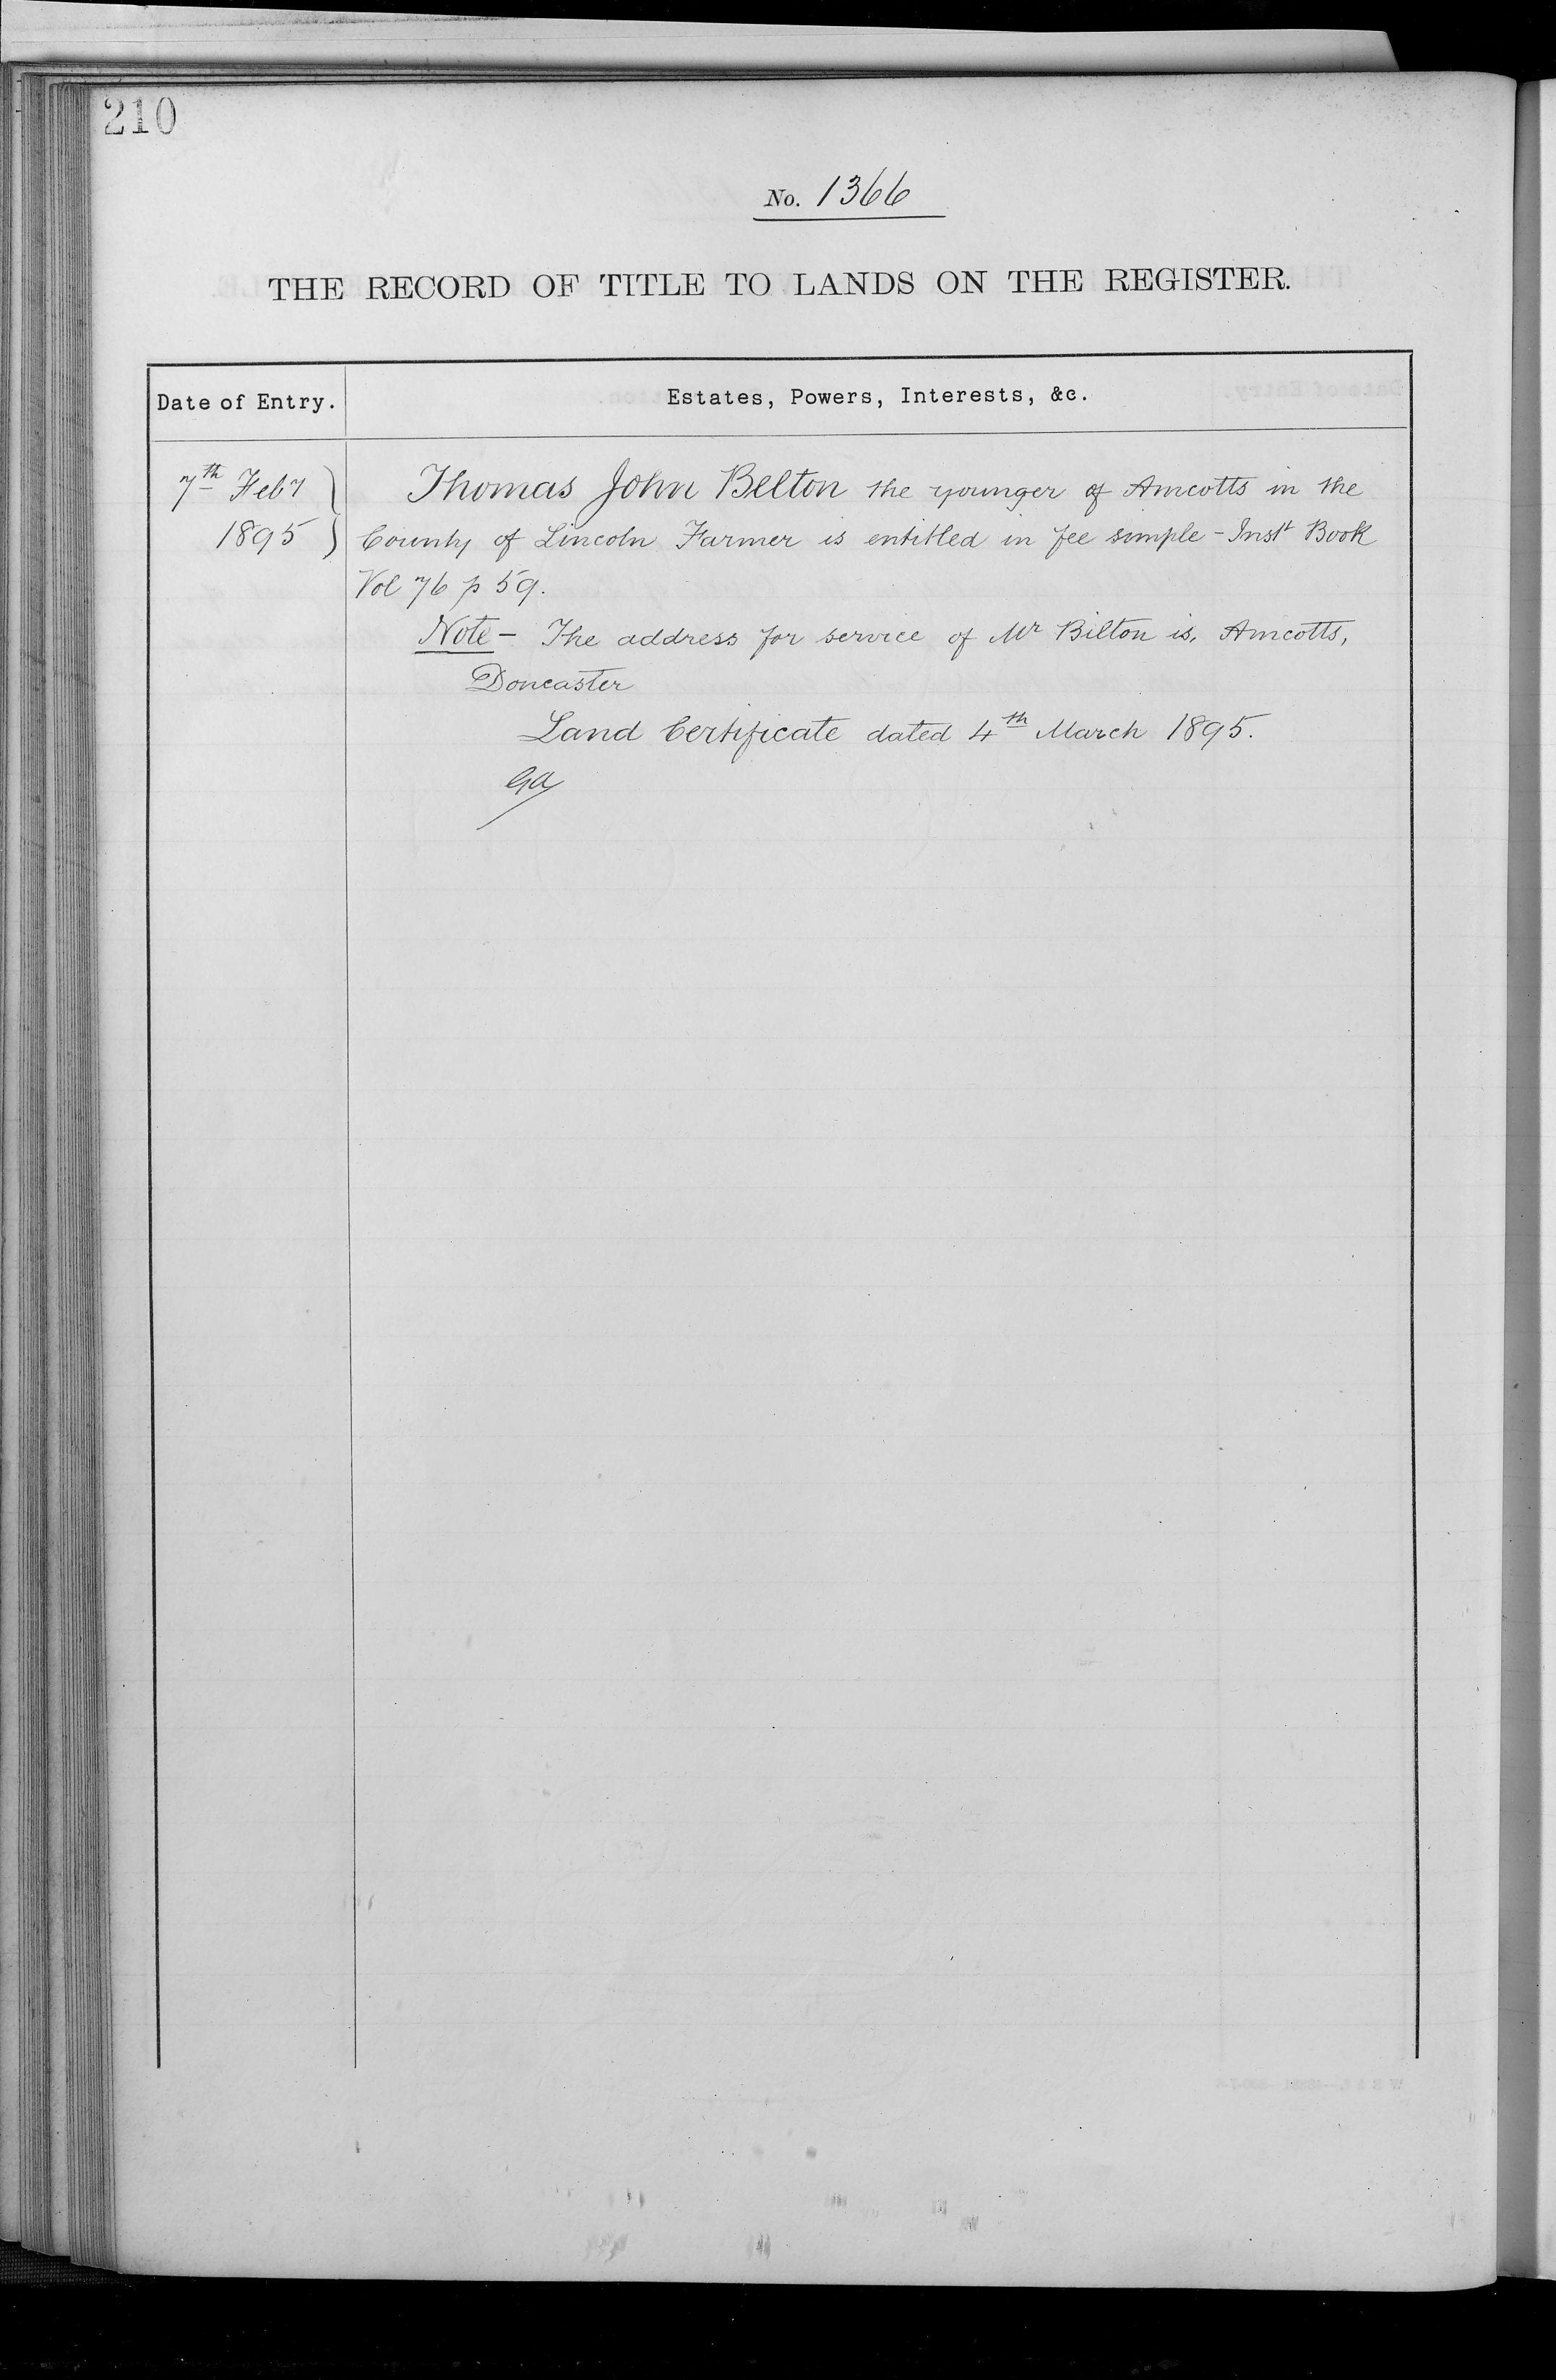 210
No. 1366
THE RECORD OF TITLE TO LANDS ON THE REGISTER.
Date of Entry.
Estates, Powers, Interests, &c.
7th Feby
1895
Thomas John Belton the younger of Amcotts in the
County of Lincoln Farmer is entitled in fee simple - Inst Book
Vol 76 p 59.
Note - The address for service of Mr Bilton is, Amcotts,
Doncaster
Land Certificate dated 4th March 1895.